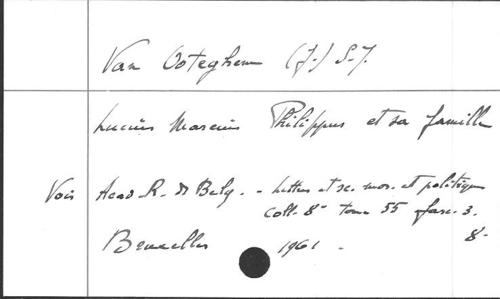 Van Ooteghem (J.) S.J.
Lucius Marcius Philippus et sa famille
Voir Acad R. de Belg. - Lettres et sc. mor. et politiques
coll. 8° tome 55 fasc. 3.
Bruxelles 1961 - 8°